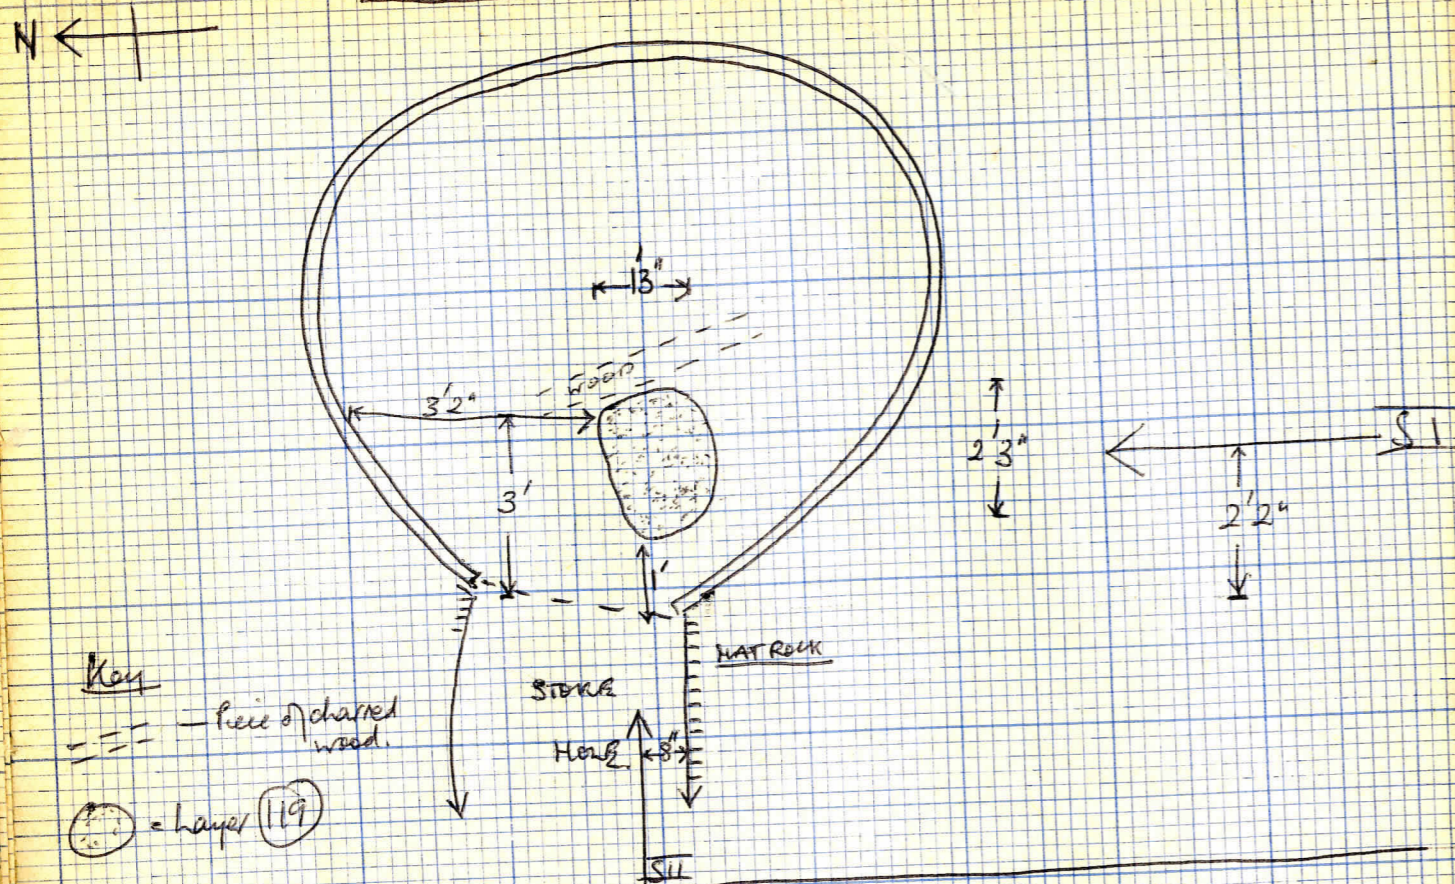 N
1'3"
wood
3'2"
3'
2'3"
SI
2'2"
1'
NAT ROCK
STOKE
HOLE
8"
Key
- Piece of charred
wood.
= Layer 119
SII